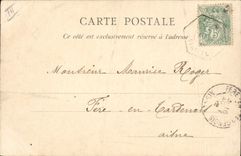 CARTE POSTALE
Ce côté est exclusivement réservé à l'adresse
Monsieur Maurice Roger
Fère-en-Tardenois
Aisne